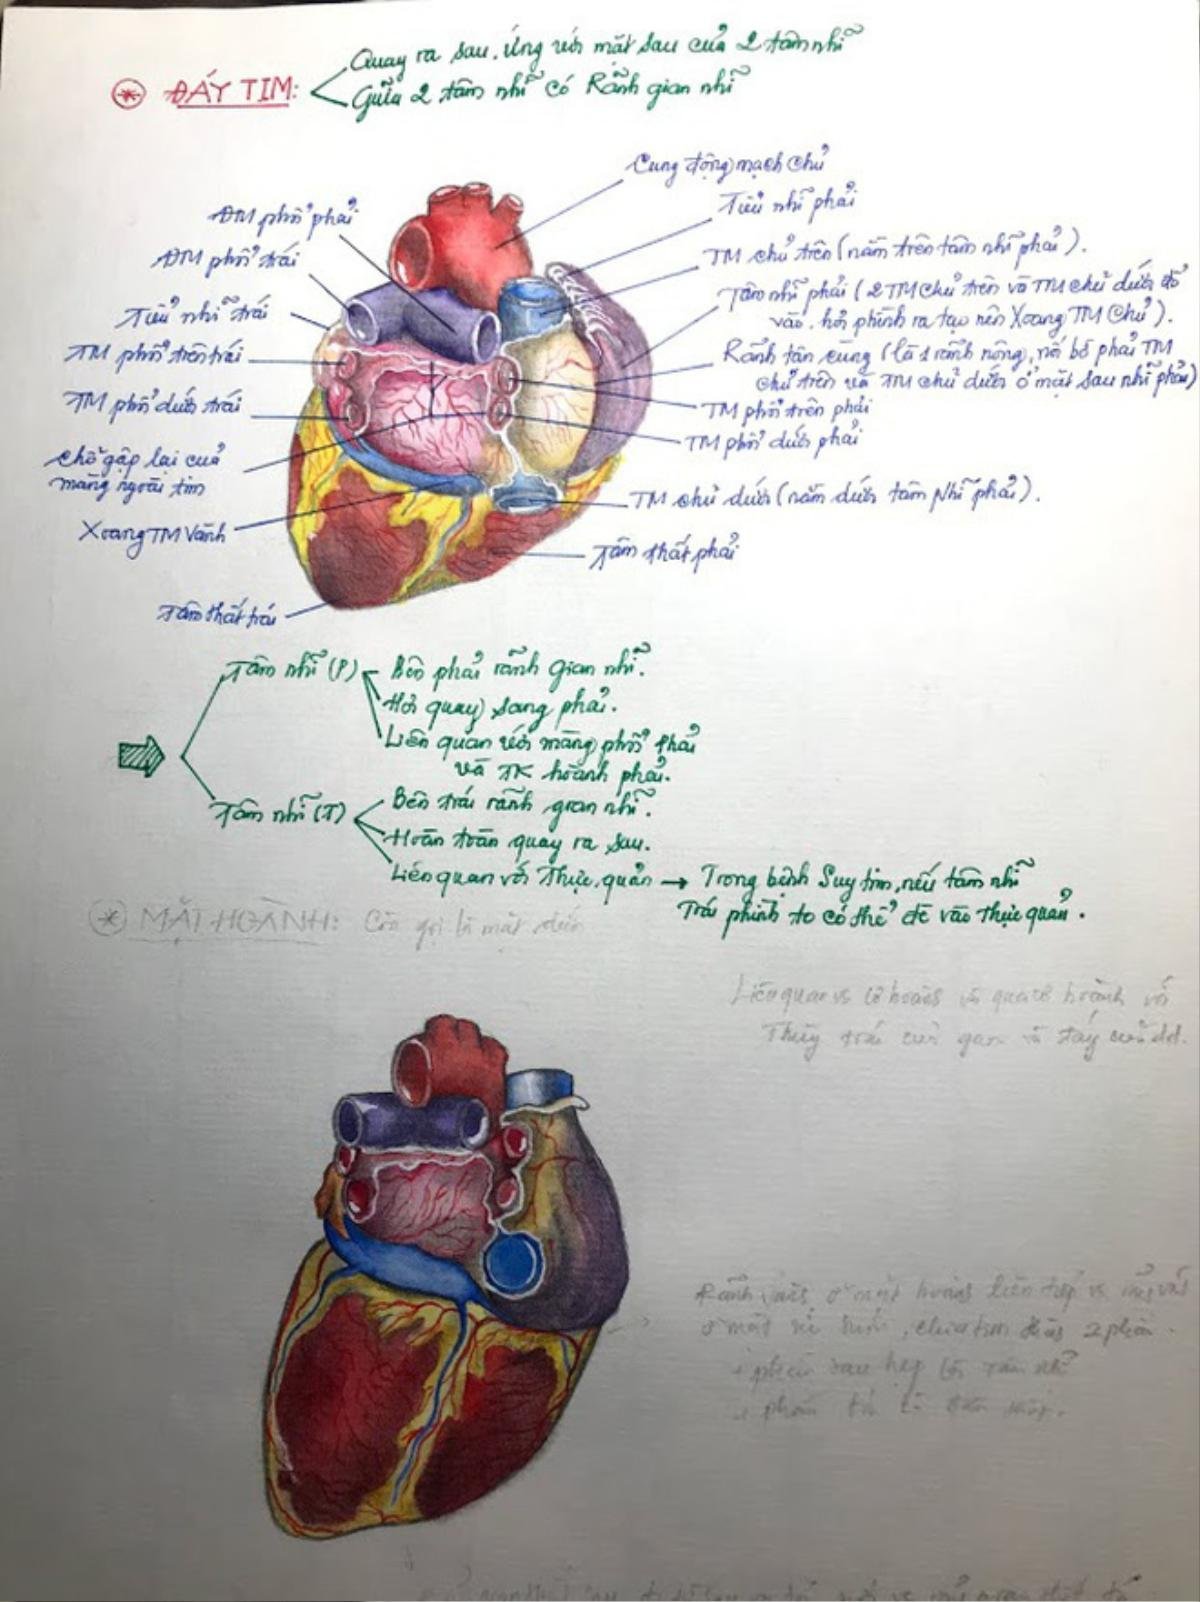 Quay ra sau, ứng với mặt sau của 2 tâm nhĩ
* ĐÁY TIM:
Giữa 2 tâm nhĩ có Rãnh gian nhĩ
Cung động mạch chủ
Tiểu nhĩ phải
ĐM phổi phải
TM chủ trên (nằm trên tâm nhĩ phải).
ĐM phổi trái
Tâm nhĩ phải (2 TM chủ trên và TM chủ dưới đổ
vào, hơi phình ra tạo nên Xoang TM Chủ).
Tiểu nhĩ trái
TM phổi trên trái
Rãnh tận cùng (là 1 rãnh nông, nối bờ phải TM
chủ trên và TM chủ dưới ở mặt sau nhĩ phải)
TM phổi dưới trái
TM phổi trên phải
TM phổi dưới phải
Chỗ gập lại của
màng ngoài tim
TM chủ dưới (nằm dưới tâm Nhĩ phải).
Xoang TM Vành
Tâm thất phải
Tâm thất trái
Tâm nhĩ (P)
Bên phải rãnh gian nhĩ.
Hơi quay sang phải.
Liên quan với màng phổi phải
và TK hoành phải.
Tâm nhĩ (T)
Bên trái rãnh gian nhĩ.
Hoàn toàn quay ra sau.
Liên quan với Thực quản → Trong bệnh Suy tim, nếu tâm nhĩ
Trái phình to có thể đè vào thực quản.
* MẶT HOÀNH: Còn gọi là mặt dưới
Liên quan vs cơ hoành và qua cơ hoành với
Thùy trái của gan và đáy của dd.
Rãnh vành ở mặt hoành
2 phần